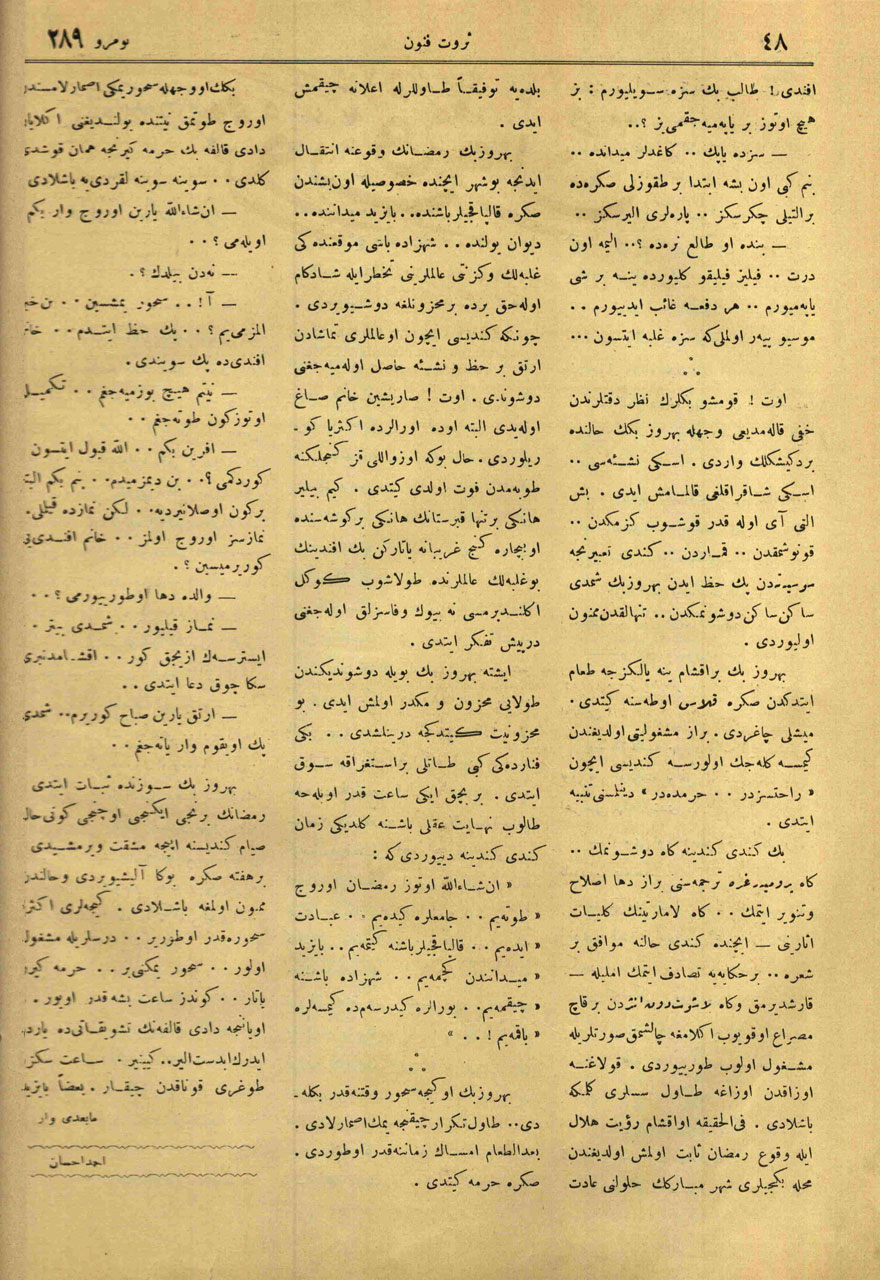 ٤٨
ثروت فنون
نومرو ٢٨٩
افندی! طالب بك سزه سویلیورم : بز
هیچ اوتوز بر یاپه‌میه‌جقمی‌یز ؟..
— سزده یاپك .. كاغدلر میدانده ..
بنم كبی اون بشه ابتدا بر طقوزلی صكره‌ده
بر التیلی چكرسكز .. پاره‌لری الیرسكز ..
— بنده او طالع نره‌ده ؟.. الیمه اون
درت .. فیلیز فیلیقو كلیورده ینه بر شی
یاپه‌میورم .. هر دفعه غائب ایدییورم ..
موسیو بیه‌ر اولملی‌كه سزه غلبه ایتسون ...
اوت ! قومشو بكلرك نظر دقتلرندن
خفی قاله‌مدیغی وجهله بهروز بكك حالنده
بردكیشكلك واردی . اسكی نشئه‌سی ..
اسكی شاقراقلغی قالمامش ایدی . بش
التی آی اوله قدر قوشوب كزمكدن ..
قونوشمقدن .. قماردن .. كندی تعبیرنجه
سرسیتدن پك حظ ایدن بهروزبك شمدی
ساكن ساكن دوشونمكدن .. تنهالقدن ممنون
اولیوردی .
بهروز بك براقشام ینه یالكزجه طعام
ایتدكدن صكره قلاس اوطه‌سنه كیتدی .
میشلی چاغردی . براز مشغولیتی اولدیغندن
كیمسه كله‌جك اولورسه كندیسی ایچون
« راحتسزدر .. حرمده‌در » دینلسنی تنبیه
ایتدی .
بك كندی كندینه كاه دوشونمك ..
كاه ترجمه‌سنی براز دها اصلاح
وتنویر ایتمك .. كاه لامارتینك كلیات
اثارینی — ایچنده كندی حالنه موافق بر
شعره .. بر حكایه‌یه تصادف ایتمك املیله —
قارشدیرمق وكاه بر قاچ
مصراع اوقویوب اكلامغه چالشمق صورتلریله
مشغول اولوب طورییوردی . قولاغنه
اوزاقدن اوزاغه طاول سسلری كلمكه
باشلادی . فی‌الحقیقه اواقشام رؤیت هلال
ایله وقوع رمضان ثابت اولمش اولدیغندن
محله بكجیلری شهر مباركك حلولنی عادت
بلدیه‌یه توفیقاً طاوللرله اعلانه چیقمش
ایدی .
بهروزبك رمضانك وقوعنه انتقال
ایدنجه بوشهر ایچنده خصوصیله اون‌بشندن
صكره قالپاقجیلر باشنده.. بایزید میداننده..
دیوان یولنده .. شهزاده باشی موقعنده كی
غلبه‌لك وكزنتی عالملرینی تخطر ایله شادكام
اوله‌جق یرده بر محزونلغه دوشیویردی .
چونكه كندیسی ایچون اوعالملری تماشادن
ارتق بر حظ و نشئه حاصل اوله‌میه‌جغنی
دوشوندی . اوت ! صاریشین خانم صاغ
اوله‌یدی البته اوده اورالرده اكثریا كو-
ریلوردی . حال بوكه اوزواللی قز كنجلكنه
طویه‌مدن فوت اولدی كیتدی . كیم بیلیر
هانكی برتنها قبرستانك هانكی بركوشه‌سنده
اوبیچاره كنج غریبانه یاتاركن بك افندینك
بوغلبه‌لك عالملرنده طولاشوب كوكل
اكلندیرمسی نه بیوك وفاسزلق اوله‌جغنی
درپیش تفكر ایتدی .
ایشته بهروز بك بویله دوشوندیكندن
طولایی محزون و مكدر اولمش ایدی . بو
محزونیت كیتدكجه درینلشدی .. بكی
فنارده‌كی كبی طاتلی براستغراقه سوق
ایتدی . بر بچق ایكی ساعت قدر اویله‌جه
طالوب نهایت عقلی باشنه كلدیكی زمان
كندی كندینه دییوردی كه :
« ان‌شاءالله اوتوز رمضان اوروج
« طوته‌یم .. جامعلره كیده‌یم .. عبادت
« ایده‌یم .. قالپاقجیلر باشنه كیتمه‌یم .. بایزید
« میدانندن كچمه‌یم .. شهزاده باشنه
« چیقمه‌یم .. بورالره كیدرسه‌مده كیمسه‌لره
« باقمه‌یم ! .. »
بهروزبك اوكیجه سحور وقتنه‌قدر بكله-
دی.. طاول تكرار چیقنجه یمك اصمارلادی .
بعدالطعام امساك زماننه‌قدر اوطوردی .
صكره حرمه كیتدی .
بكك اووجهله سحور یمكی اصمارلامسندن
اوروج طوتمق نیتنده بولندیغنی اكلایان
دادی قالفه بك حرمه كیرنجه همان قوشدی
كلدی .. سوینه سوینه لقردی‌یه باشلادی
— ان‌شاءالله یارین اوروج وار بكم
اویله‌می ؟ ..
— نه‌دن بیلدك ؟ .
— آ ! .. سحور یمشسین ..
المزمی‌یم ؟ .. پك حظ ایتدم ..
افندی‌ده پك سویندی .
— نیتم هیچ بوزمیه‌جغم ..
اوتوزكون طوته‌جغم ..
— افرین بكم .. الله قبول ایتسون
كوردكمی ؟ .. بن دیمزمیدم .. بنم بكم
بركون اوصلانیردیه .. لكن نمازده قیلملی.
نمازسز اوروج اولمز .. خانم افندی‌یی
كوریرمیسین ؟ .
— والده دها اوطورییورمی ؟ ..
— نماز قیلیور .. شمدی بیتر .
ایسترسه‌ك ازیجق كور ..
سكا چوق دعا ایتدی ..
— ارتق یارین صباح كوریرم .. شمدی
پك اویقوم وار یاته‌جغم ..
بهروز بك سوزنده ثبات ایتدی
رمضانك برنجی ایكنجی اوچنجی كونی
صیام كندیسنه اییجه مشقت ویرمشیدی
برهفته صكره بوكا آلیشیویردی
ممنون اولمغه باشلادی . كیجه‌لری
سحوره‌قدر اوطوریر .. درسلریله مشغول
اولور .. سحور یمكنی‌یر .. حرمه
یاتار .. كوندز ساعت بشه قدر اویور .
اویاننجه دادی قالفه‌نك تشویقاتی‌ده
ایدرك ابدست الیر.. كیینیر . ساعت سكزه
طوغری قوناقدن چیقار . بعضاً بایزید
مابعدی وار
احمد احسان